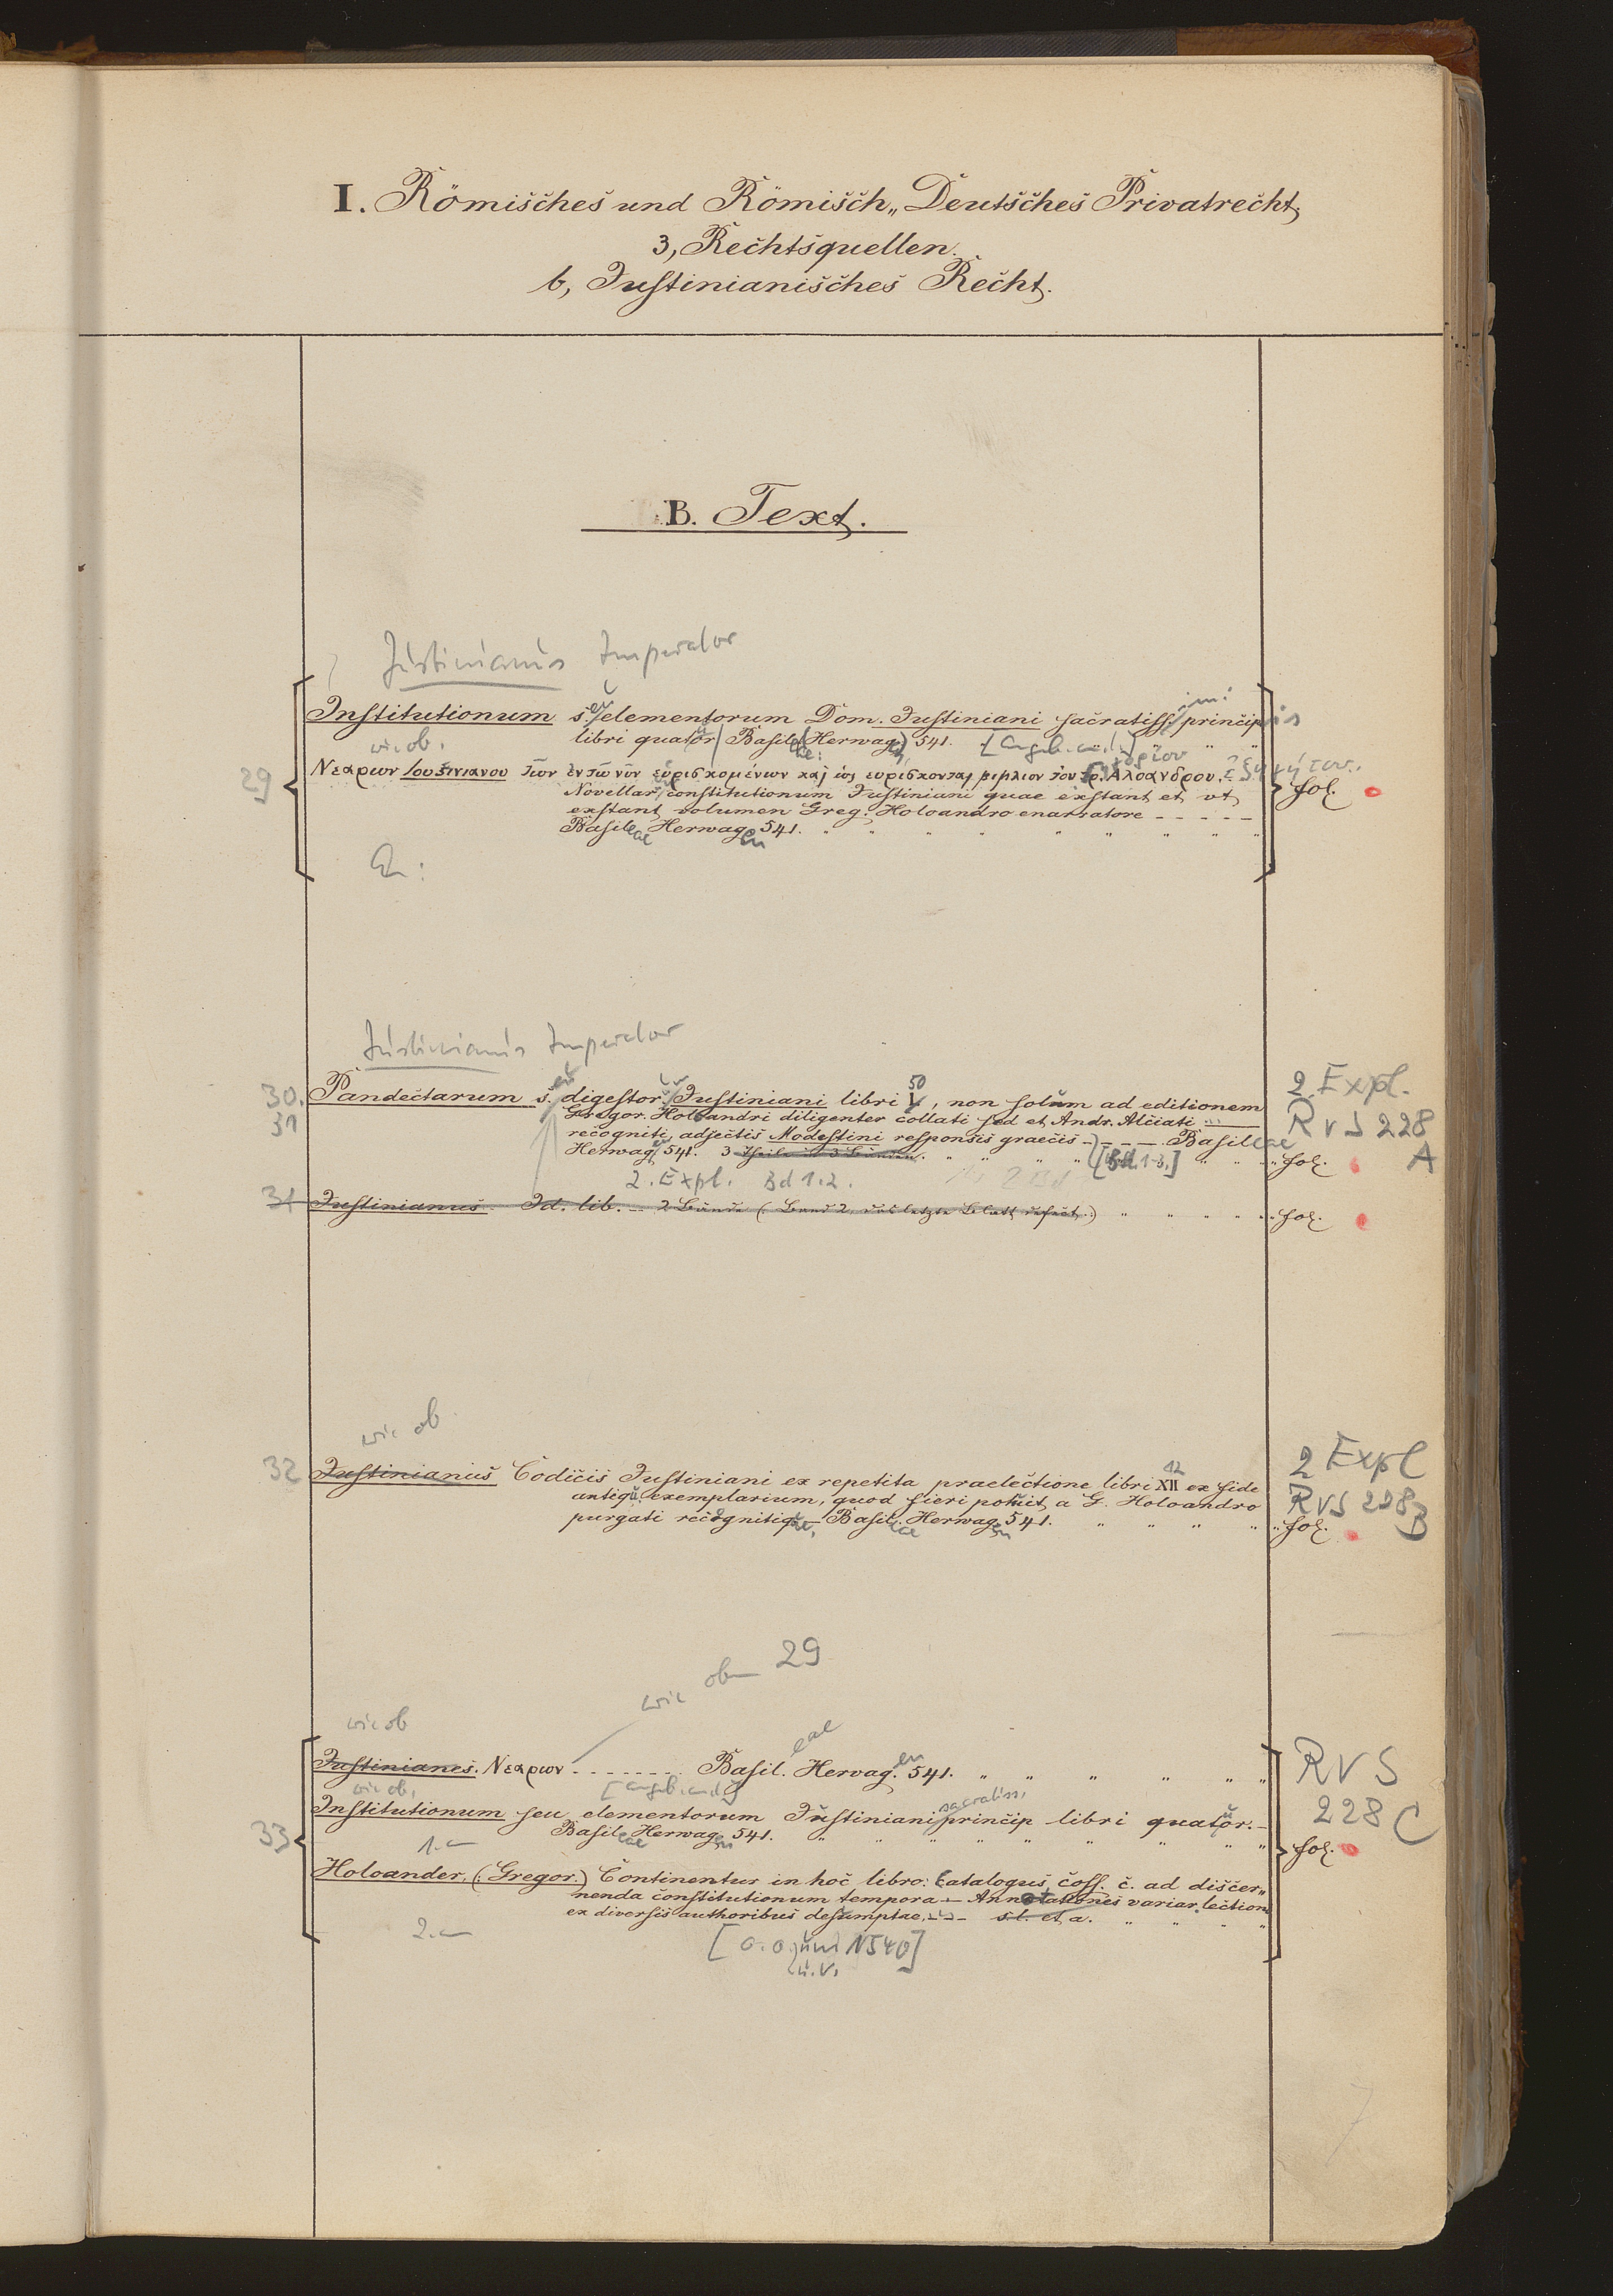 I. Römisches und Römisch„ Deutsches Privatrecht,
3, Rechtsquellen.
b, Justinianisches Recht.
B. Text.
Justinianus Imperator
Institutionum s. elementorum Dom. Justiniani sacratiss. princip
libri quatuor Basil. Herwag. 541.
wie ob.
29
Νεαρων Ιουςινιανου των εν τω νυν ευρισκομενων και ως ευρισκονται βιβλιον του Γρ. Αλοανδρου.
Novellar. constitutionum Justiniani quae exstant et vt
fol.
exstant volumen Greg. Holoandro enarratore - - - - -
Basileae Herwagen 541.
Justinianus Imperator
2. Expl.
30. Pandectarum s. digestor. Justiniani libri 50, non solum ad editionem
31 Gregor. Holoandri diligenter collati sed et Andr. Alciati
RVS 228
recogniti, adjectis Modestini responsis graecis - - - - Basileae
Herwag. 541. 3 Theile in 3 Bänden. [Bd. 1-3.] fol. A
2. Expl. Bd 1.2.
31 Justinianus. Id. lib. - 2 Bände (Band 2, das letzte Blatt defect.) fol.
wie ob
2 Expl
32 Justinianus Codicis Justiniani ex repetita praelectione libri XII 12 ex fide
antiqu. exemplarium, quod fieri potuit a G. Holoandro
RVS 228 B
purgati recognitique, - Basileae Herwagen 541. fol.
wie oben 29
wie ob
Justinianus. Νεαρων - - - - - - - Basil.eae Hervag.en 541.
RVS
wie ob. [angeb. an d.]
228 C
Institutionum seu elementorum Justiniani sacratiss. princip libri quatuor. -
33 Basileae Herwagen 541.
fol.
1. an
Holoander, (Gregor.) Continentur in hoc libro: Catalogus coss. c. ad discer„
nenda constitutionum tempora - Annotationes variar. lection
ex diversis authoribus desumptae. - - - s. l. et a.
2. an
[o. O. um 1540]